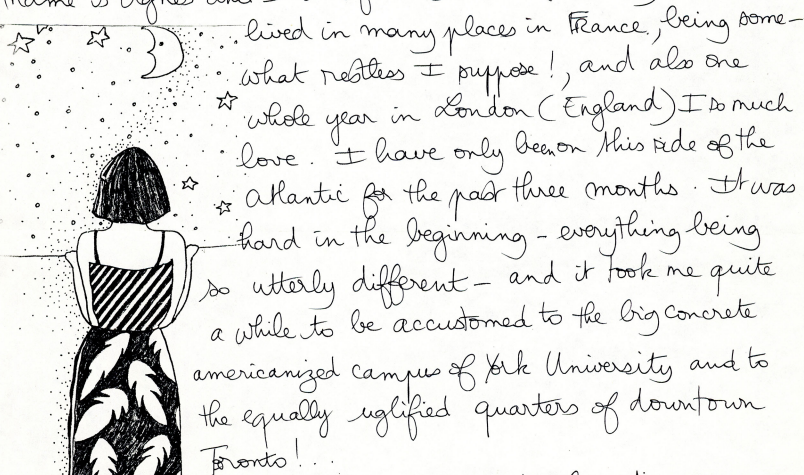 name is Agnes and I
lived in many places in France, being some-
what restless I suppose!, and also one
whole year in London (England) I so much
love. I have only been on this side of the
Atlantic for the past three months. It was
hard in the beginning - everything being
so utterly different - and it took me quite
a while to be accustomed to the big concrete
americanized campus of York University and to
the equally uglified quarters of downtown
Toronto!...